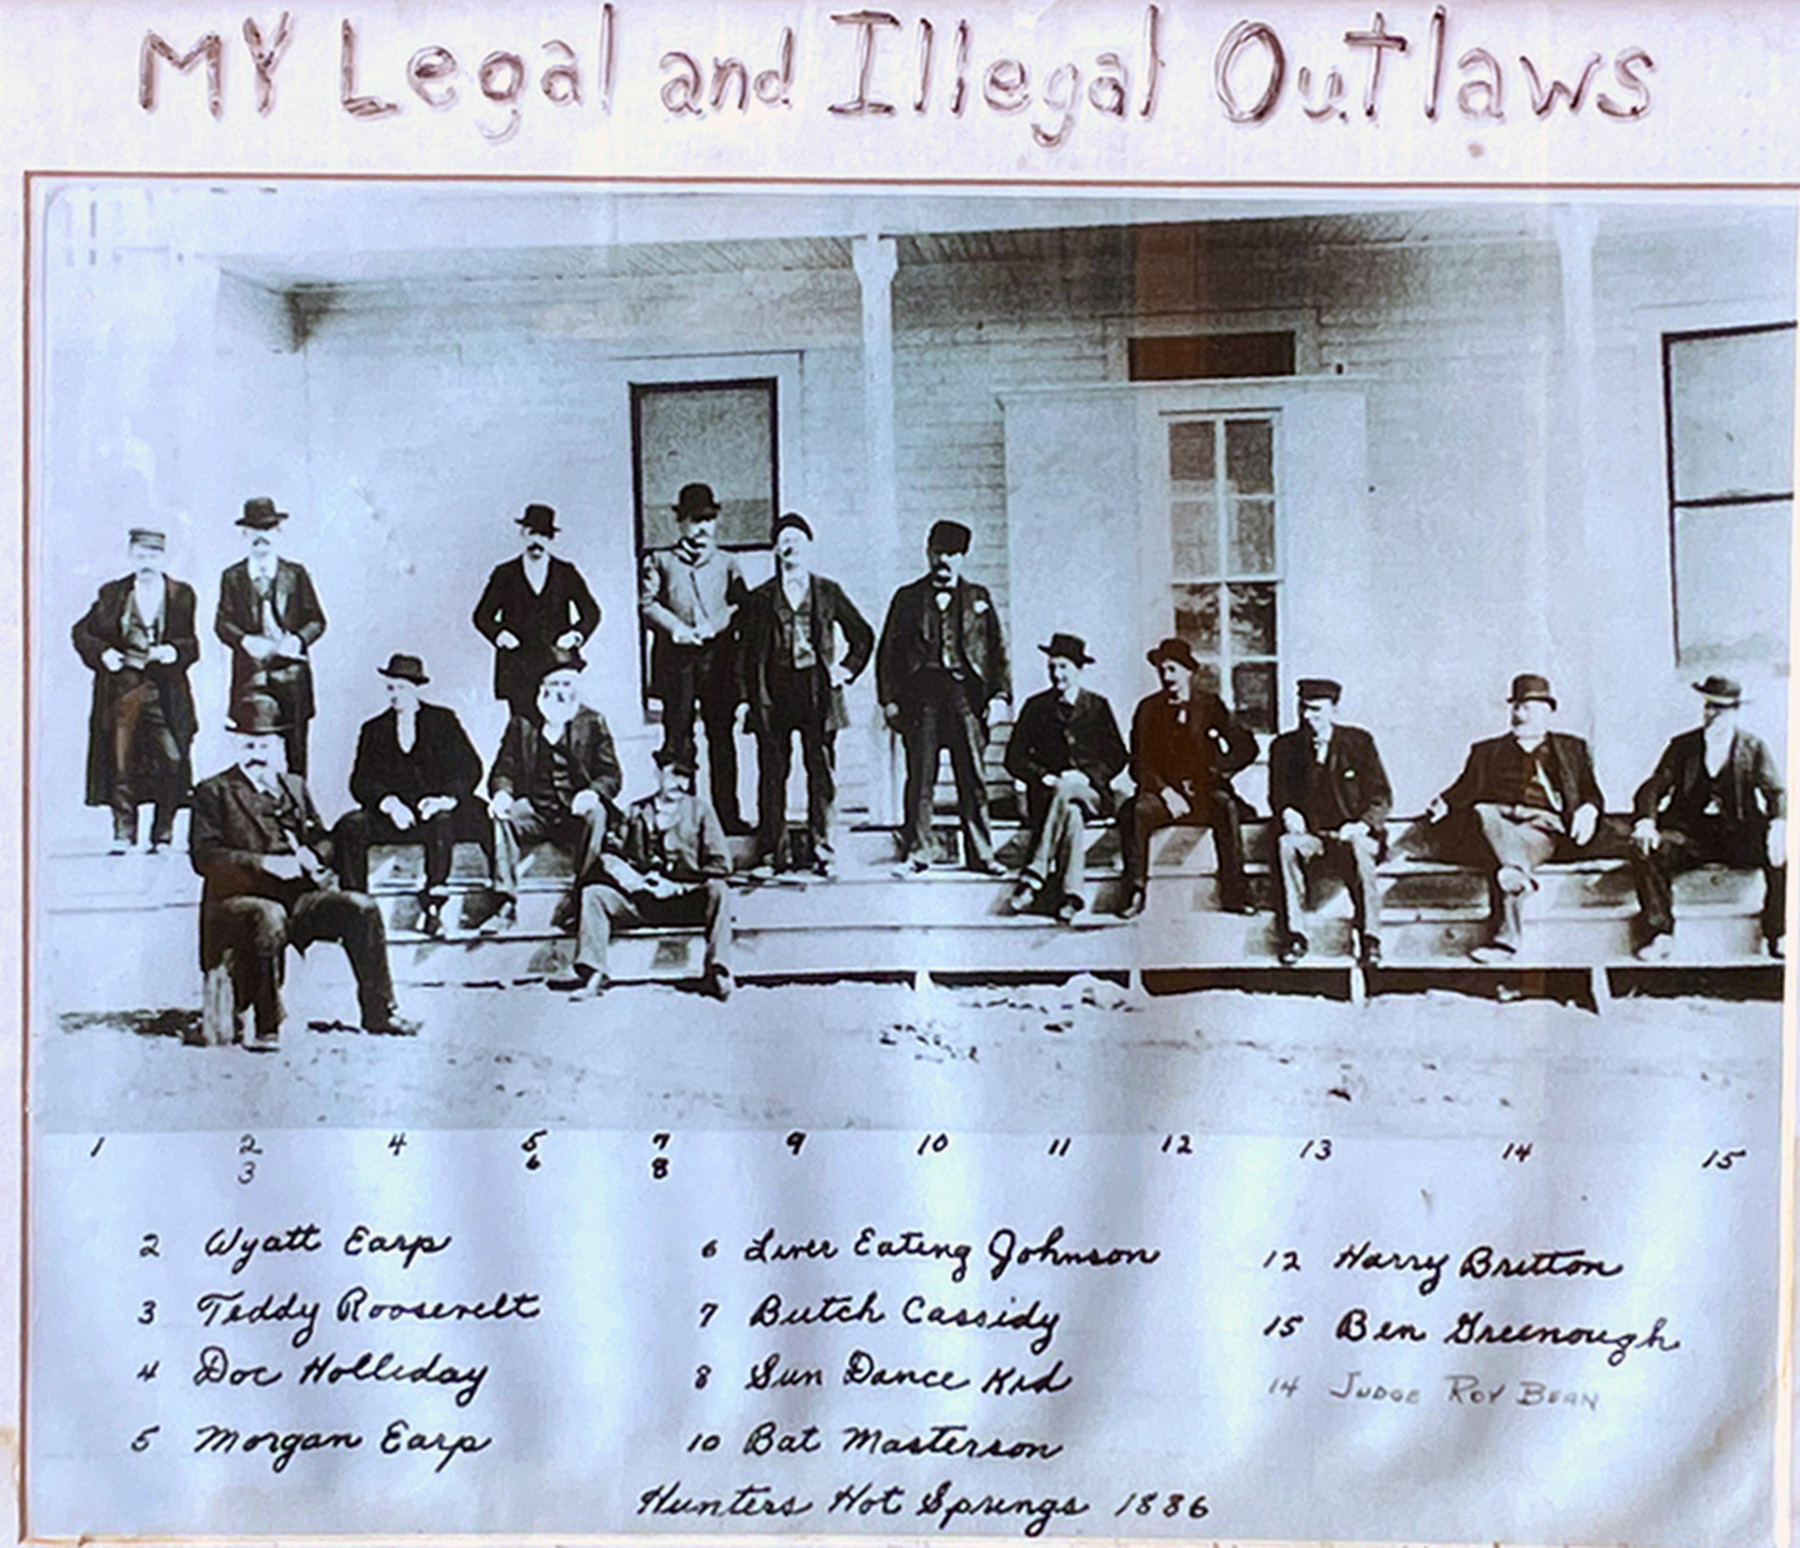 MY Legal and Illegal Outlaws
1 2 4 5 7 9 10 11 12 13 14 15
3 6 8
2 Wyatt Earp
3 Teddy Roosevelt
4 Doc Holliday
5 Morgan Earp
6 Liver Eating Johnson
7 Butch Cassidy
8 Sun Dance Kid
10 Bat Masterson
12 Harry Britton
15 Ben Greenough
14 JUDGE ROY BEAN
Hunters Hot Springs 1886